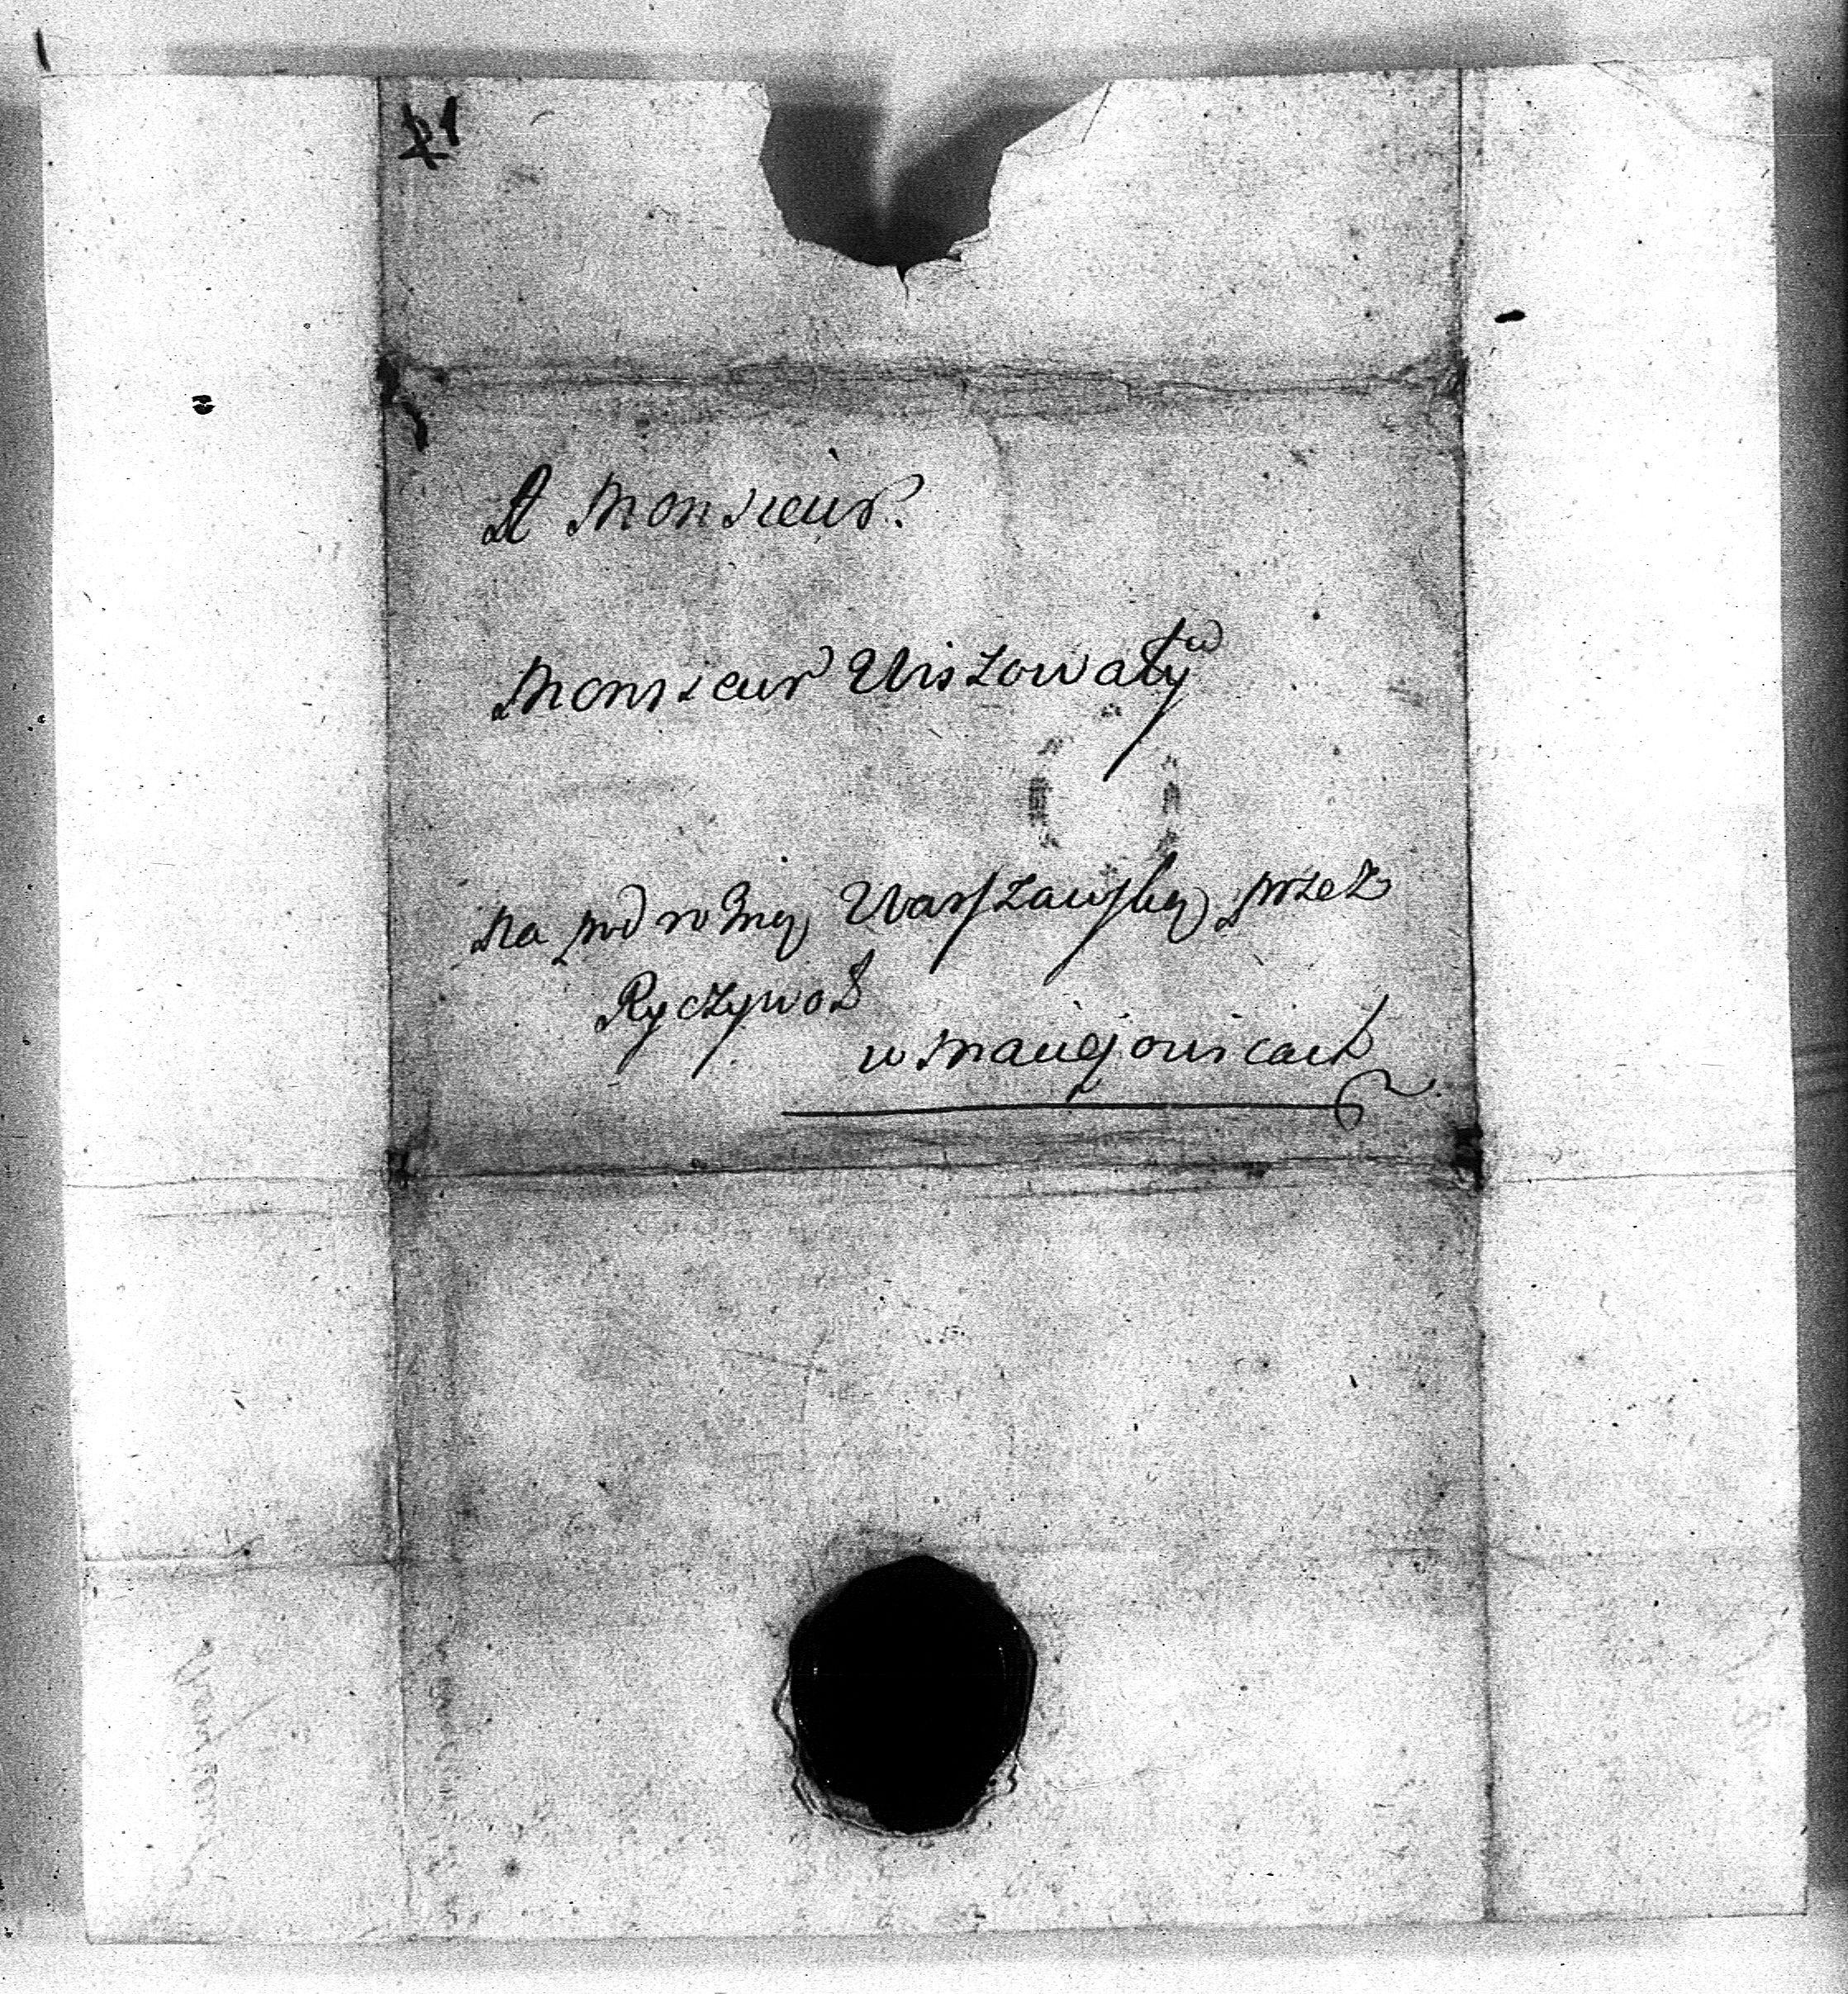 A Monsieur.
Monsieur Wiszowaty
na podrożnę Warszawską przez
Ryczywoł
w Maciejowicach